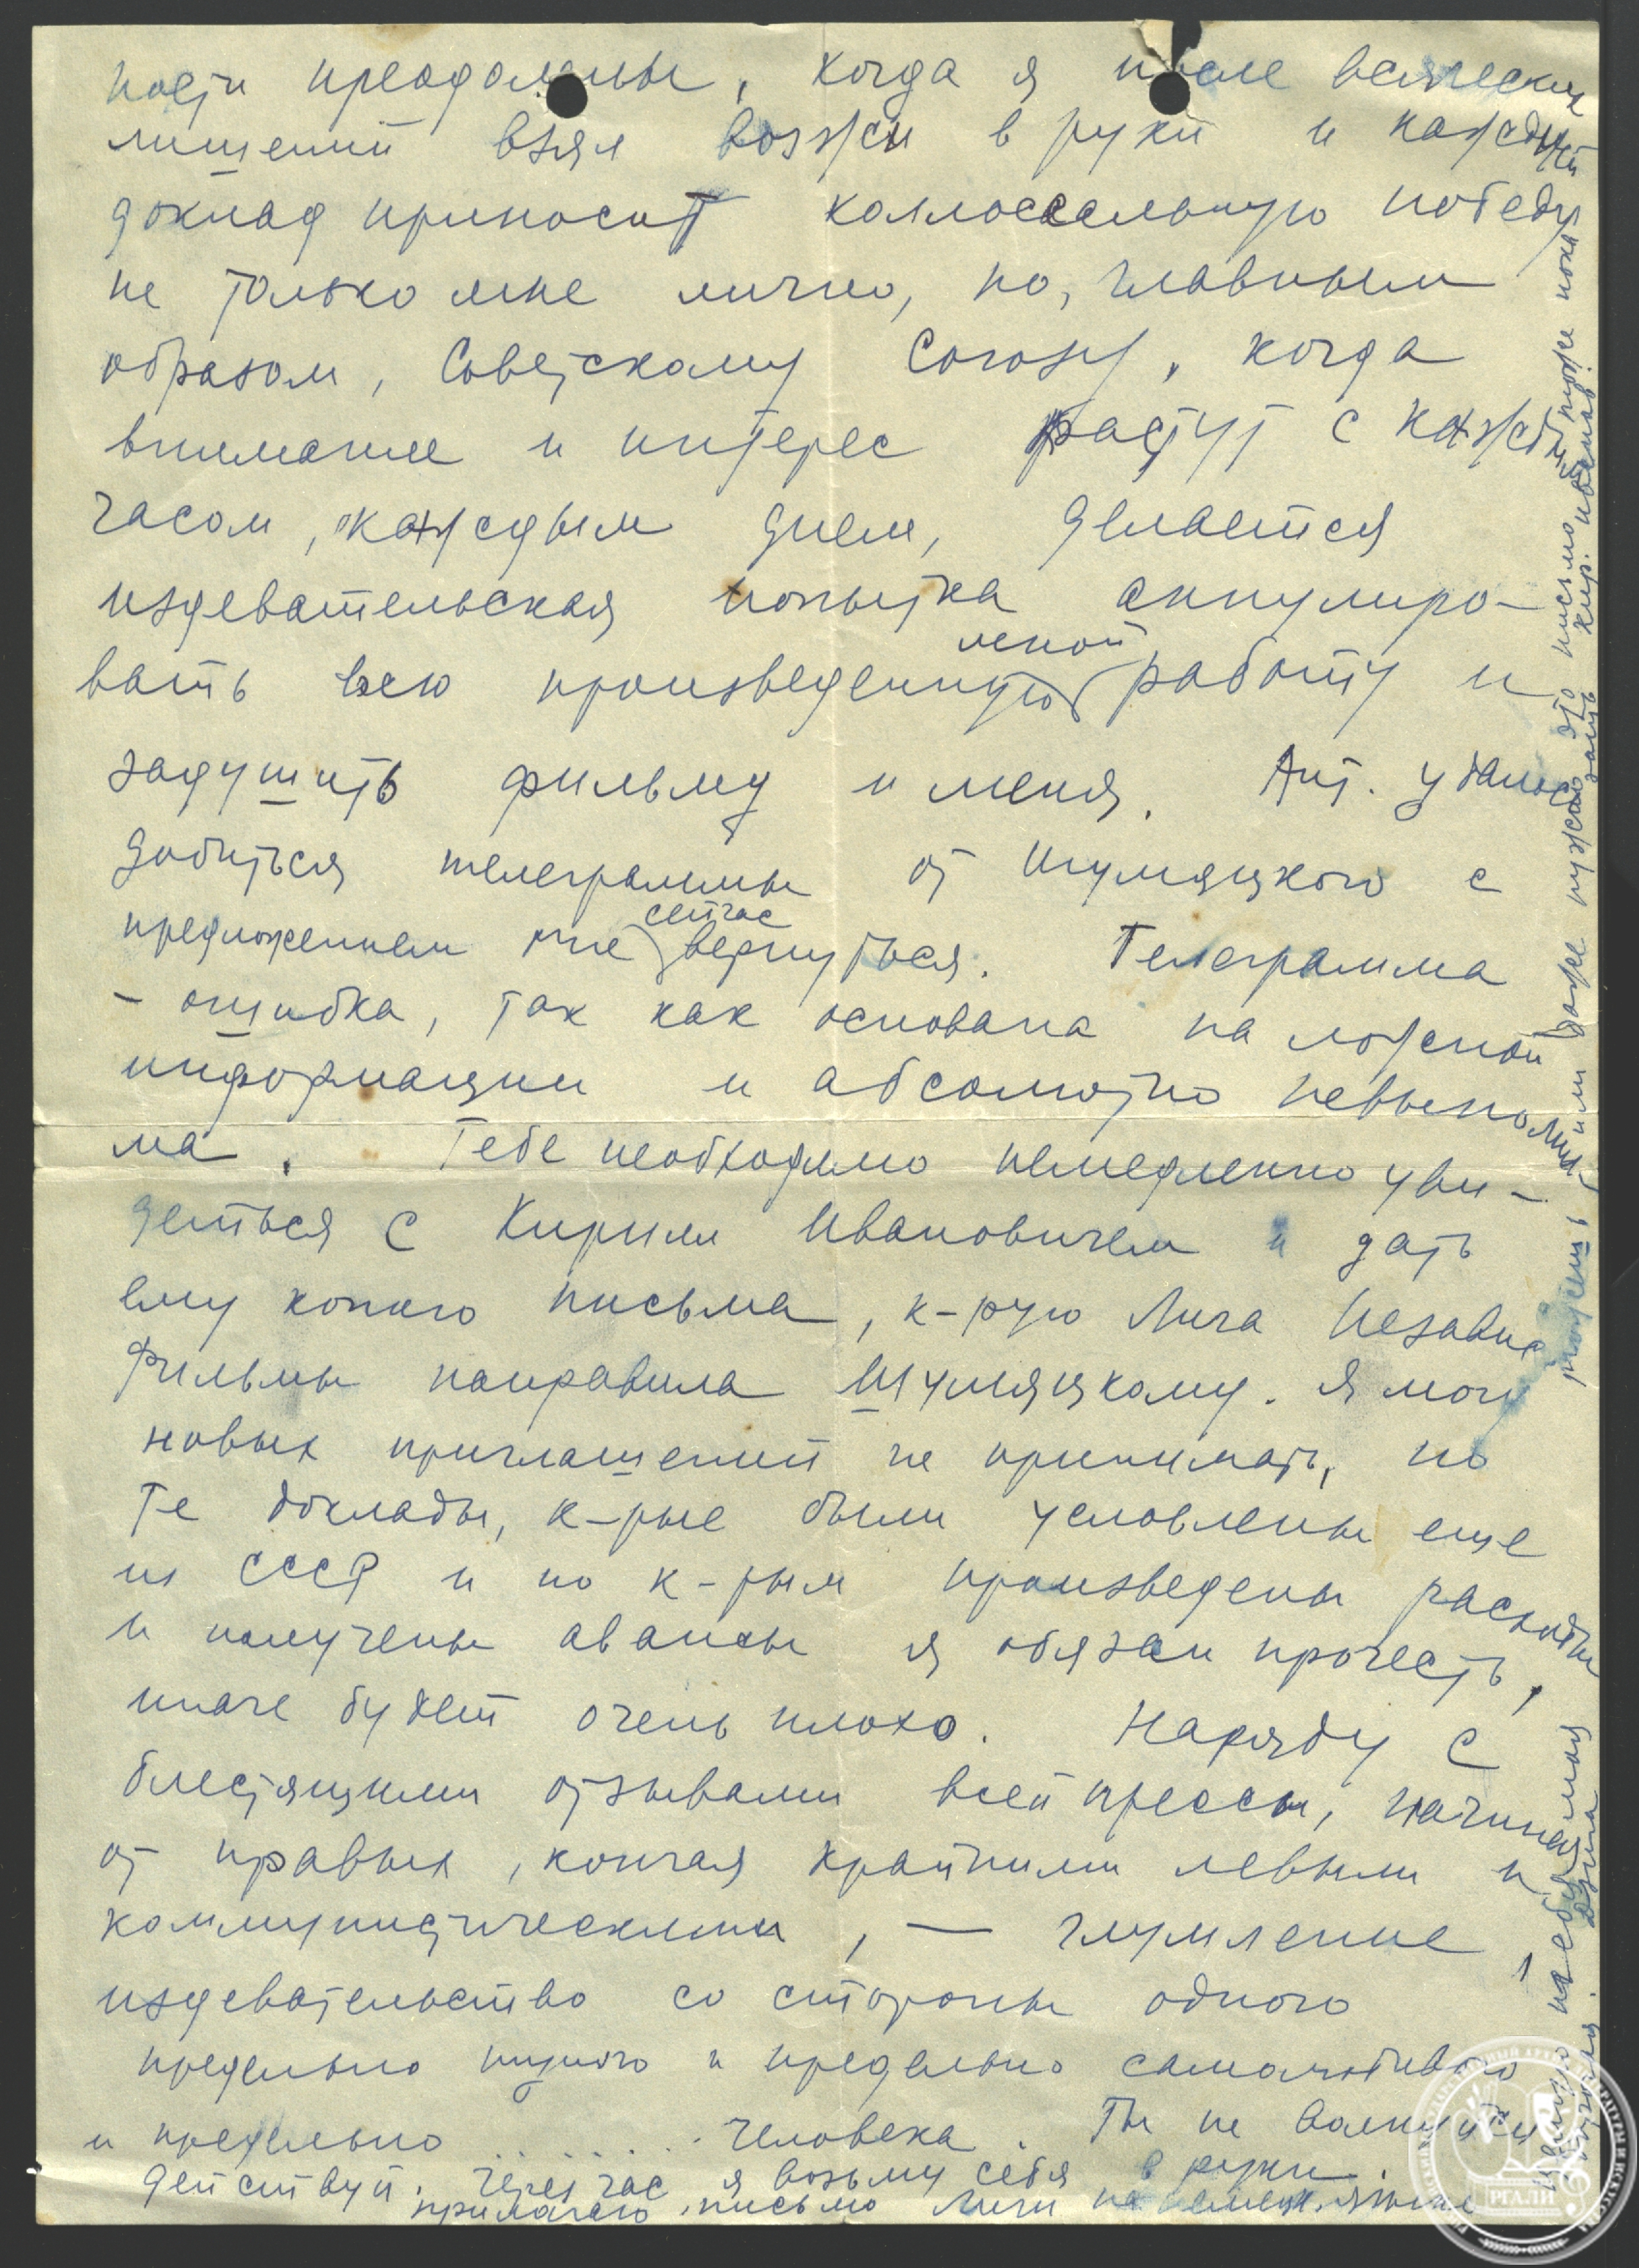 ности преодолены, когда я после всяческих
лишений взял возжи в руки и каждый
доклад приносит коллоссальную победу
не только мне лично, но, главным
образом, Советскому Союзу, когда
внимание и интерес растут с каждым
часом, каждым днем, делается
издевательская попытка аннулиро-
вать всю произведенную мной работу и
задушить фильму и меня. Ант. удалось
добиться телеграммы от Шумяцкого с
предложением мне сейчас вернуться. Телеграмма
- ошибка, так как основана на ложной
информации и абсолютно невыполни-
ма. Тебе необходимо немедленно уви-
деться с Кирилл Ивановичем и дать
ему копию письма, к-рую Лига Независ
Фильмы направила Шумяцкому. Я могу
новых приглашений не принимать, но
те доклады, к-рые были условлены еще
из СССР и по к-рым произведены расходы
и получены авансы я обязан прочесть,
иначе будет очень плохо. Наряду с
блестящими отзывами всей прессы, начиная
от правых, кончая крайними левыми и
коммунистическими, — глумление,
издевательство со стороны одного
предельно нудного и предельно самолюбивого
и предельно . . . . . . человека. Ты не волнуйся
действуй. Через час я возьму себя в руки.
прилагаю письмо Лиги на немецк. языке
можешь или даже нужно это письмо тоже пока-
зать Кир. Иванов.
целую любимая моя
Дзига